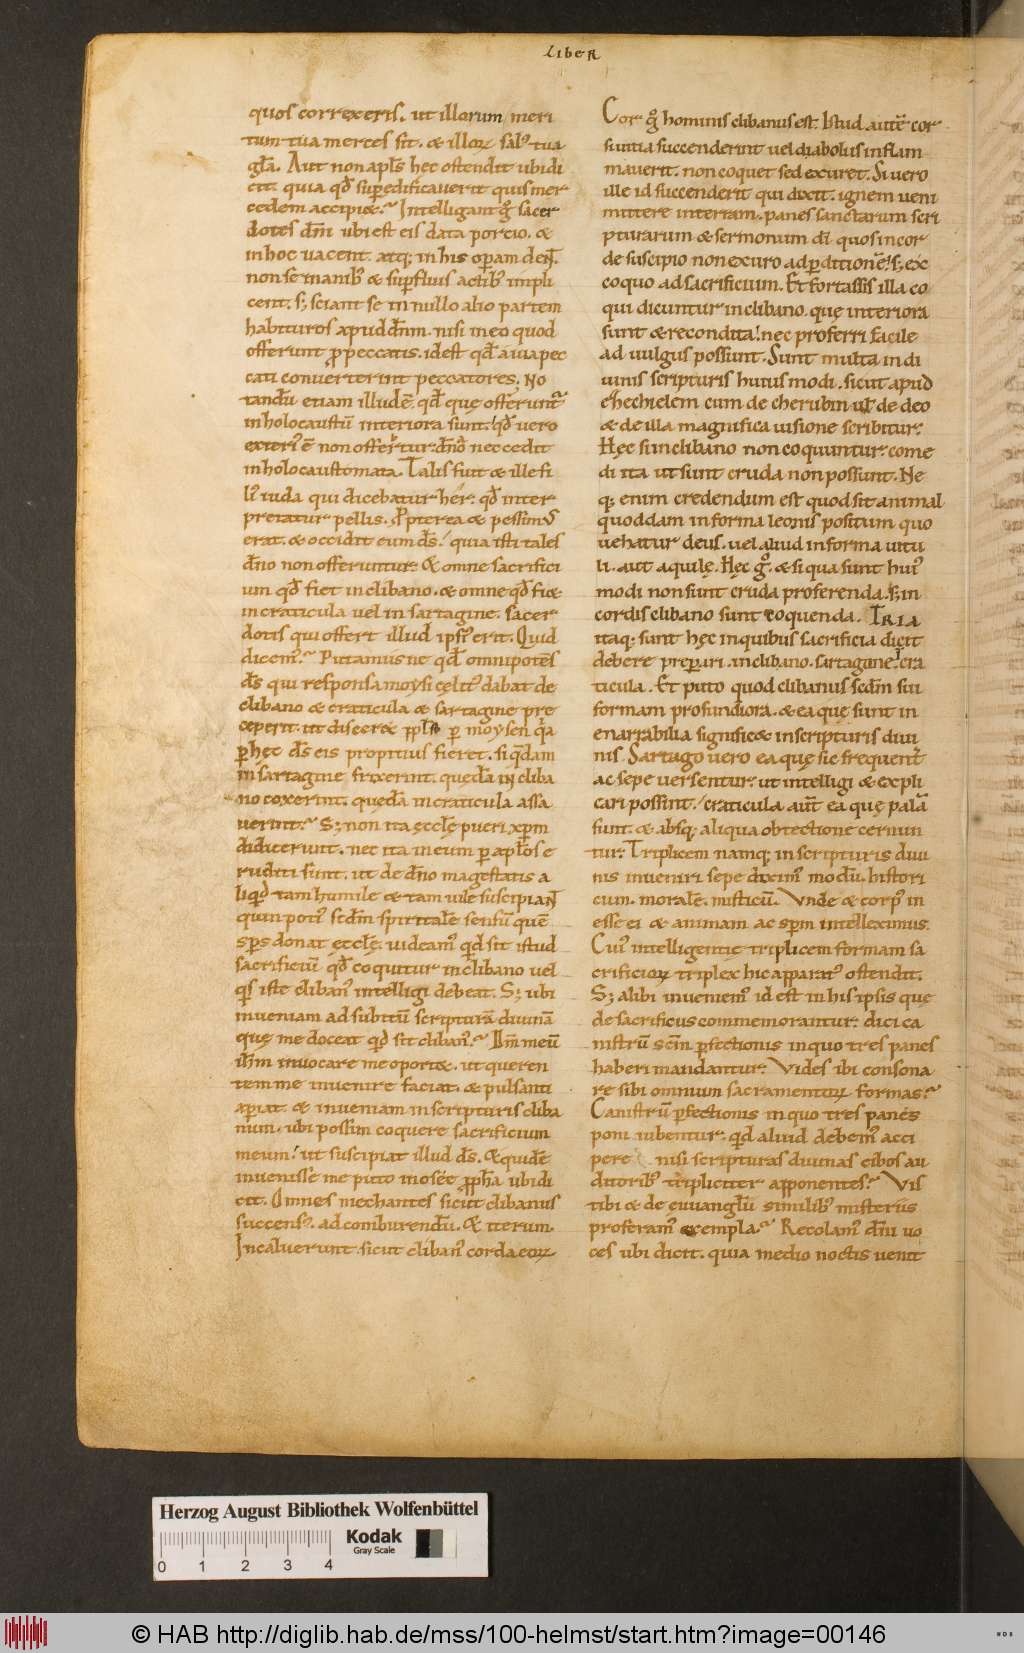 LibeR
quos correxeris. ut illorum meri
tum tua merces sit. & illoꝝ sal᷒ tua
gl̄a. Aut non apl̄s hec ostendit ubi di
cit. quia qđ suꝑedificauerit quis mer
cedem accipi&? Intelligant g̊ sacer
dotes dn̄i ubi est eis data portio. &
in hoc uacent. atq; in his oꝑam dent
non se inanib᷒ & suꝑfluis actib᷒ impli
cent. s; sciant se in nullo alio partem
habituros apud dn̄m. nisi in eo quod
offerunt ꝓ peccatis. id est qđ a uia pec
cati conuerterint peccatores. No
tandū etiam illud ē. qđ quę offerunt᷒
in holocaustū interiora sunt. qđ uero
exteri᷒ ē non offertur dn̄o nec cedit
in holocaustomata. Talis fuit & ille fi
li᷒ iuda qui dicebatur her. qđ inter
pretatur pellis. Ꝓpterea & pessim᷒
erat. & occidit eum ds̄. quia isti tales
dn̄o non offeruntur. & omne sacrifici
um qđ fiet in clibano. & omne qđ fi&
in craticula uel in sartagine. sacer
dotis qui offert illud ipsi᷒ erit. Quid
dicem᷒? Putamus ne qđ omnipotēs
ds̄ qui responsa moysi cęlit᷒ dabat de
clibano & craticula & sartagine pre
ceperit. ut discer& ppl̄s ꝑ moysen qa
ꝑ hęc ds̄ eis propitius fieret. si qdam
in sartagine frixerint. quędā in cliba
no coxerint. quędā in craticula assa
uerint? S; non ita ęcclę pueri xp̄m
didicerunt. nec ita in eum ꝑ apl̄os e
ruditi sunt. ut de dn̄o magestatis a
liqd tam humile & tam uile suscipiant
quin poti᷒ scdm̄ spiritalē sensū quē
sps̄ donat ęcclę. uideam᷒ qd sit istud
sacrificiū qđ coquitur in clibano uel
qs iste cliban᷒ intelligi debeat. S; ubi
inueniam ad subitū scripturā diuinā
quę me doceat qd sit cliban᷒? Dn̄m meū
ihm̄ inuocare me oport&. ut queren
tem me inuenire faciat. & pulsanti
aꝑiat. & inueniam in scripturis cliba
num. ubi possim coquere sacrificium
meum. ut suscipiat illud ds̄. & quidē
inuenisse me puto in oseę ꝓph̄a ubi di
cit. Omnes mechantes sicut clibanus
succens᷒. ad comburendū. & iterum.
Incaluerunt sicut cliban᷒ corda eoꝝ
Cor g̊ hominis clibanus est. Istud autē cor
si uitia succenderint uel diabolus inflam
mauerit. non coquet sed exuret. Si uero
ille id succenderit qui dixit. ignem ueni
mittere in terram. panes sanctarum scri
pturarum & sermonum dī quos in cor
de suscipio non exuro ad ꝑditionē. s; ex
coquo ad sacrificium. Et fortassis illa co
qui dicuntur in clibano. quę interiora
sunt & recondita. nec proferri facile
ad uulgus possunt. Sunt multa in di
uinis scripturis huius modi. sicut apud
ezechielem cum de cherubin ut de deo
& de illa magnifica uisione scribitur.
Hęc si in clibano non coquuntur. come
di ita ut sunt cruda non possunt. Ne
q; enim credendum est quod sit animal
quoddam in forma leonis positum quo
uehatur deus. uel aliud in forma uitu
li. aut aquilę. Hęc g̊ & si qua sunt hui᷒
modi non sunt cruda proferenda. s; in
cordis clibano sunt coquenda. TRIA
itaq; sunt hęc in quibus sacrificia dicit
debere prepari. in clibano. sartagine. cra
ticula. Et puto quod clibanus scdm̄ sui
formam profundiora. & ea quę sunt in
enarrabilia signific& in scripturis diui
nis. Sartago uero ea quę sic frequent᷒
ac sepe uersentur. ut intelligi & expli
cari possint. craticula aut̄ ea quę palā
sunt. & absq; aliqua obtectione cernun
tur. Triplicem namq; in scripturis diui
nis inueniri sepe diximus modū. histori
cum. moralē. misticū. Vnde & corp᷒ in
esse ei & animam ac sp̄m intelleximus.
Cui᷒ intelligentię triplicem formam sa
crificioꝝ triplex hic apparat᷒ ostendit.
S; alibi inuenim᷒ id est in his ipsis que
de sacrificiis commemorantur. dici ca
nistrū scm̄ ꝑfectionis in quo tres panes
haberi mandantur. Vides ibi consona
re sibi omnium sacramentoꝝ formas?
Canistrū ꝑfectionis in quo tres panes
poni iubentur. qd aliud debem᷒ acci
pere nisi scripturas diuinas cibos au
ditorib᷒ tripliciter apponentes? Vis
tibi & de euuangl̄ii similib᷒ misteriis
proferam᷒ exempla? Recolam᷒ dn̄i uo
ces ubi dicit. quia medio noctis uenit
Herzog August Bibliothek Wolfenbüttel
Kodak
Gray Scale
0 1 2 3 4
© HAB http://diglib.hab.de/mss/100-helmst/start.htm?image=00146